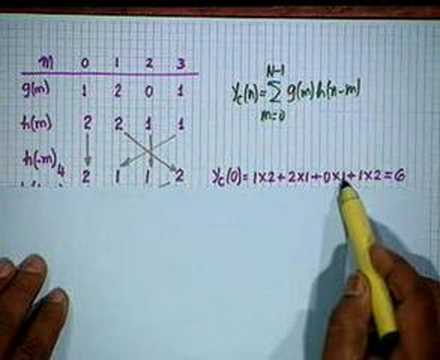 m 0 1 2 3
g(m) 1 2 0 1
y_c(n) = Σ_{m=0}^{N-1} g(m) h(n-m)
h(m) 2 2 1 1
h(-m)_4 2 1 1 2
y_c(0) = 1×2+2×1+0×1+1×2=6